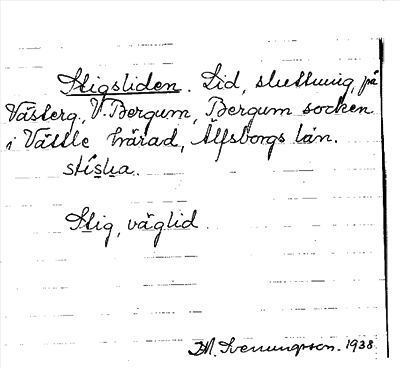 Stigsliden. Lid, sluttning, på
Västerg., V. Bergum, Bergum socken
i Vättle härad, Älfsborgs län.
Stig, väglid
M. Svenungsson. 1938